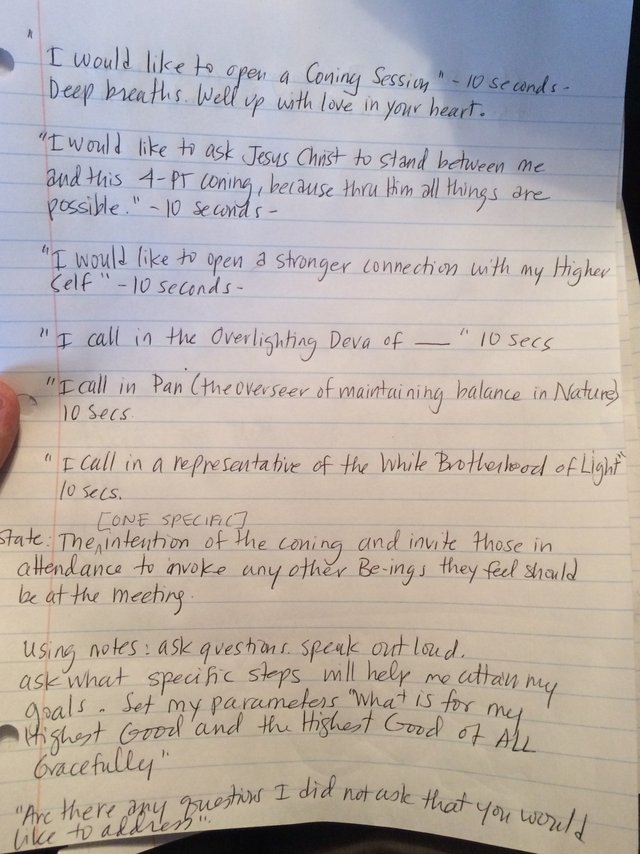 "I would like to open a Coning Session" - 10 seconds -
Deep breaths. Well up with love in your heart.
"I would like to ask Jesus Christ to stand between me
and this 4-PT coning, because thru Him all things are
possible." - 10 seconds -
"I would like to open a stronger connection with my Higher
Self" - 10 seconds -
"I call in the Overlighting Deva of —" 10 secs
"I call in Pan (the overseer of maintaining balance in Nature)
10 secs.
"I call in a representative of the White Brotherhood of Light"
10 secs.
[ONE SPECIFIC]
State: The ^ intention of the coning and invite those in
attendance to invoke any other Be-ings they feel should
be at the meeting.
Using notes: ask questions. speak out loud.
ask what specific steps will help me attain my
goals. Set my parameters "What is for my
Highest Good and the Highest Good of ALL
Gracefully"
"Are there any questions I did not ask that you would
like to address".